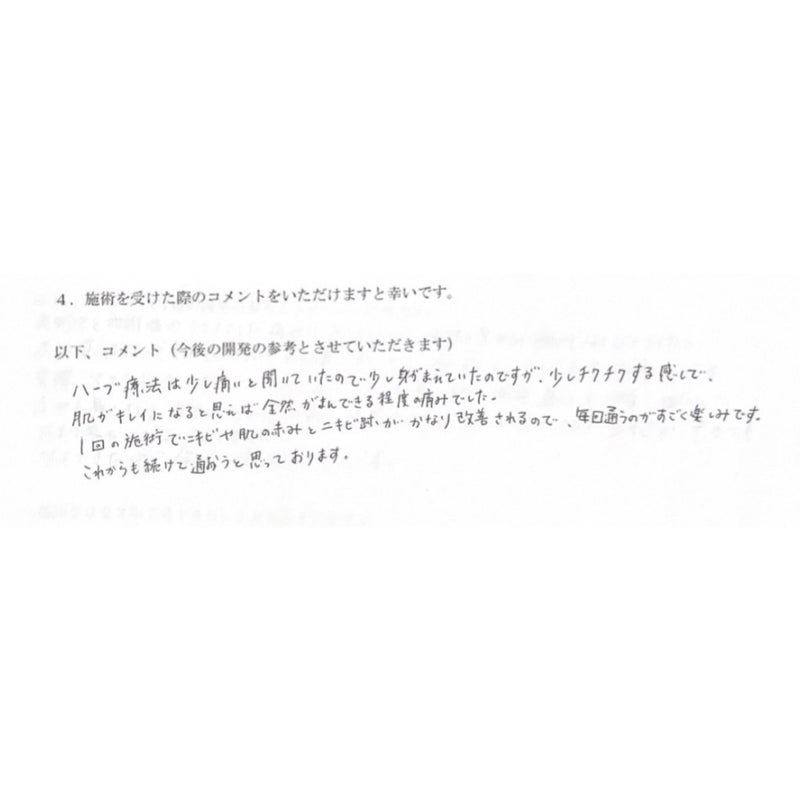 4．施術を受けた際のコメントをいただけますと幸いです。
以下、コメント（今後の開発の参考とさせていただきます）
ハーブ療法は少し痛いと聞いていたので少し身がまえていたのですが、少しチクチクする感じで、
肌がキレイになると思えば全然がまんできる程度の痛みでした。
1回の施術でニキビや肌の赤みとニキビ跡がかなり改善されるので、毎回通うのがすごく楽しみです。
これからも続けて通おうと思っております。